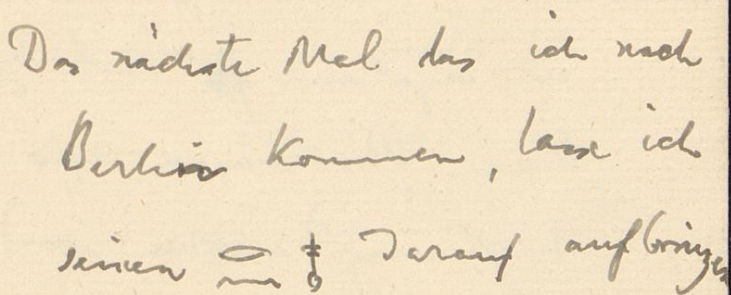 Das nächste Mal das ich nach
Berlin kommen, lasse ich
seinen darauf aufbringen